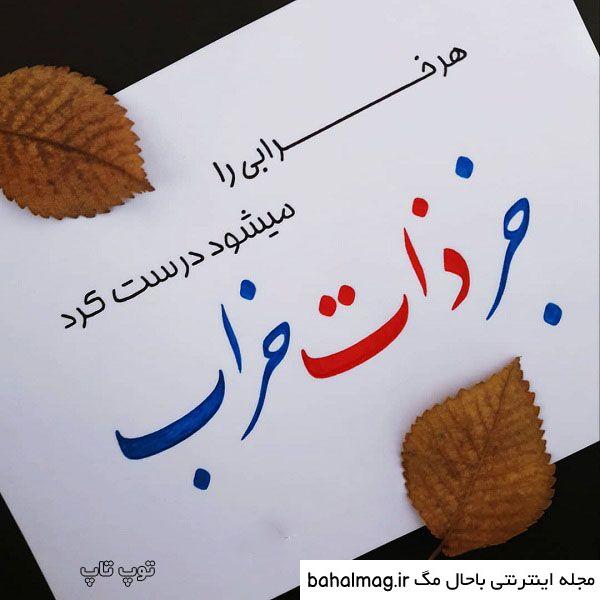 هر خـــرابی را
میشود درست کرد
جز ذات خراب
توپ تاپ
مجله اینترنتی باحال مگ bahalmag.ir